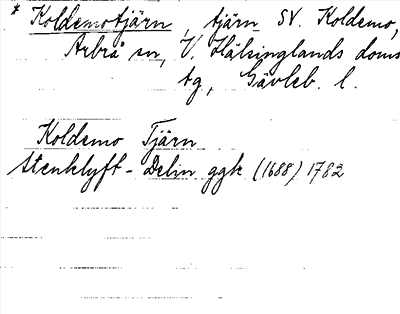 * Koldemotjärn, tjärn SV. Koldemo,
Arbrå sn, V. Hälsinglands doms
tg, Gävleb. l.
Koldemo Tjärn
Stenklyft - Delin ggbr (1688) 1782